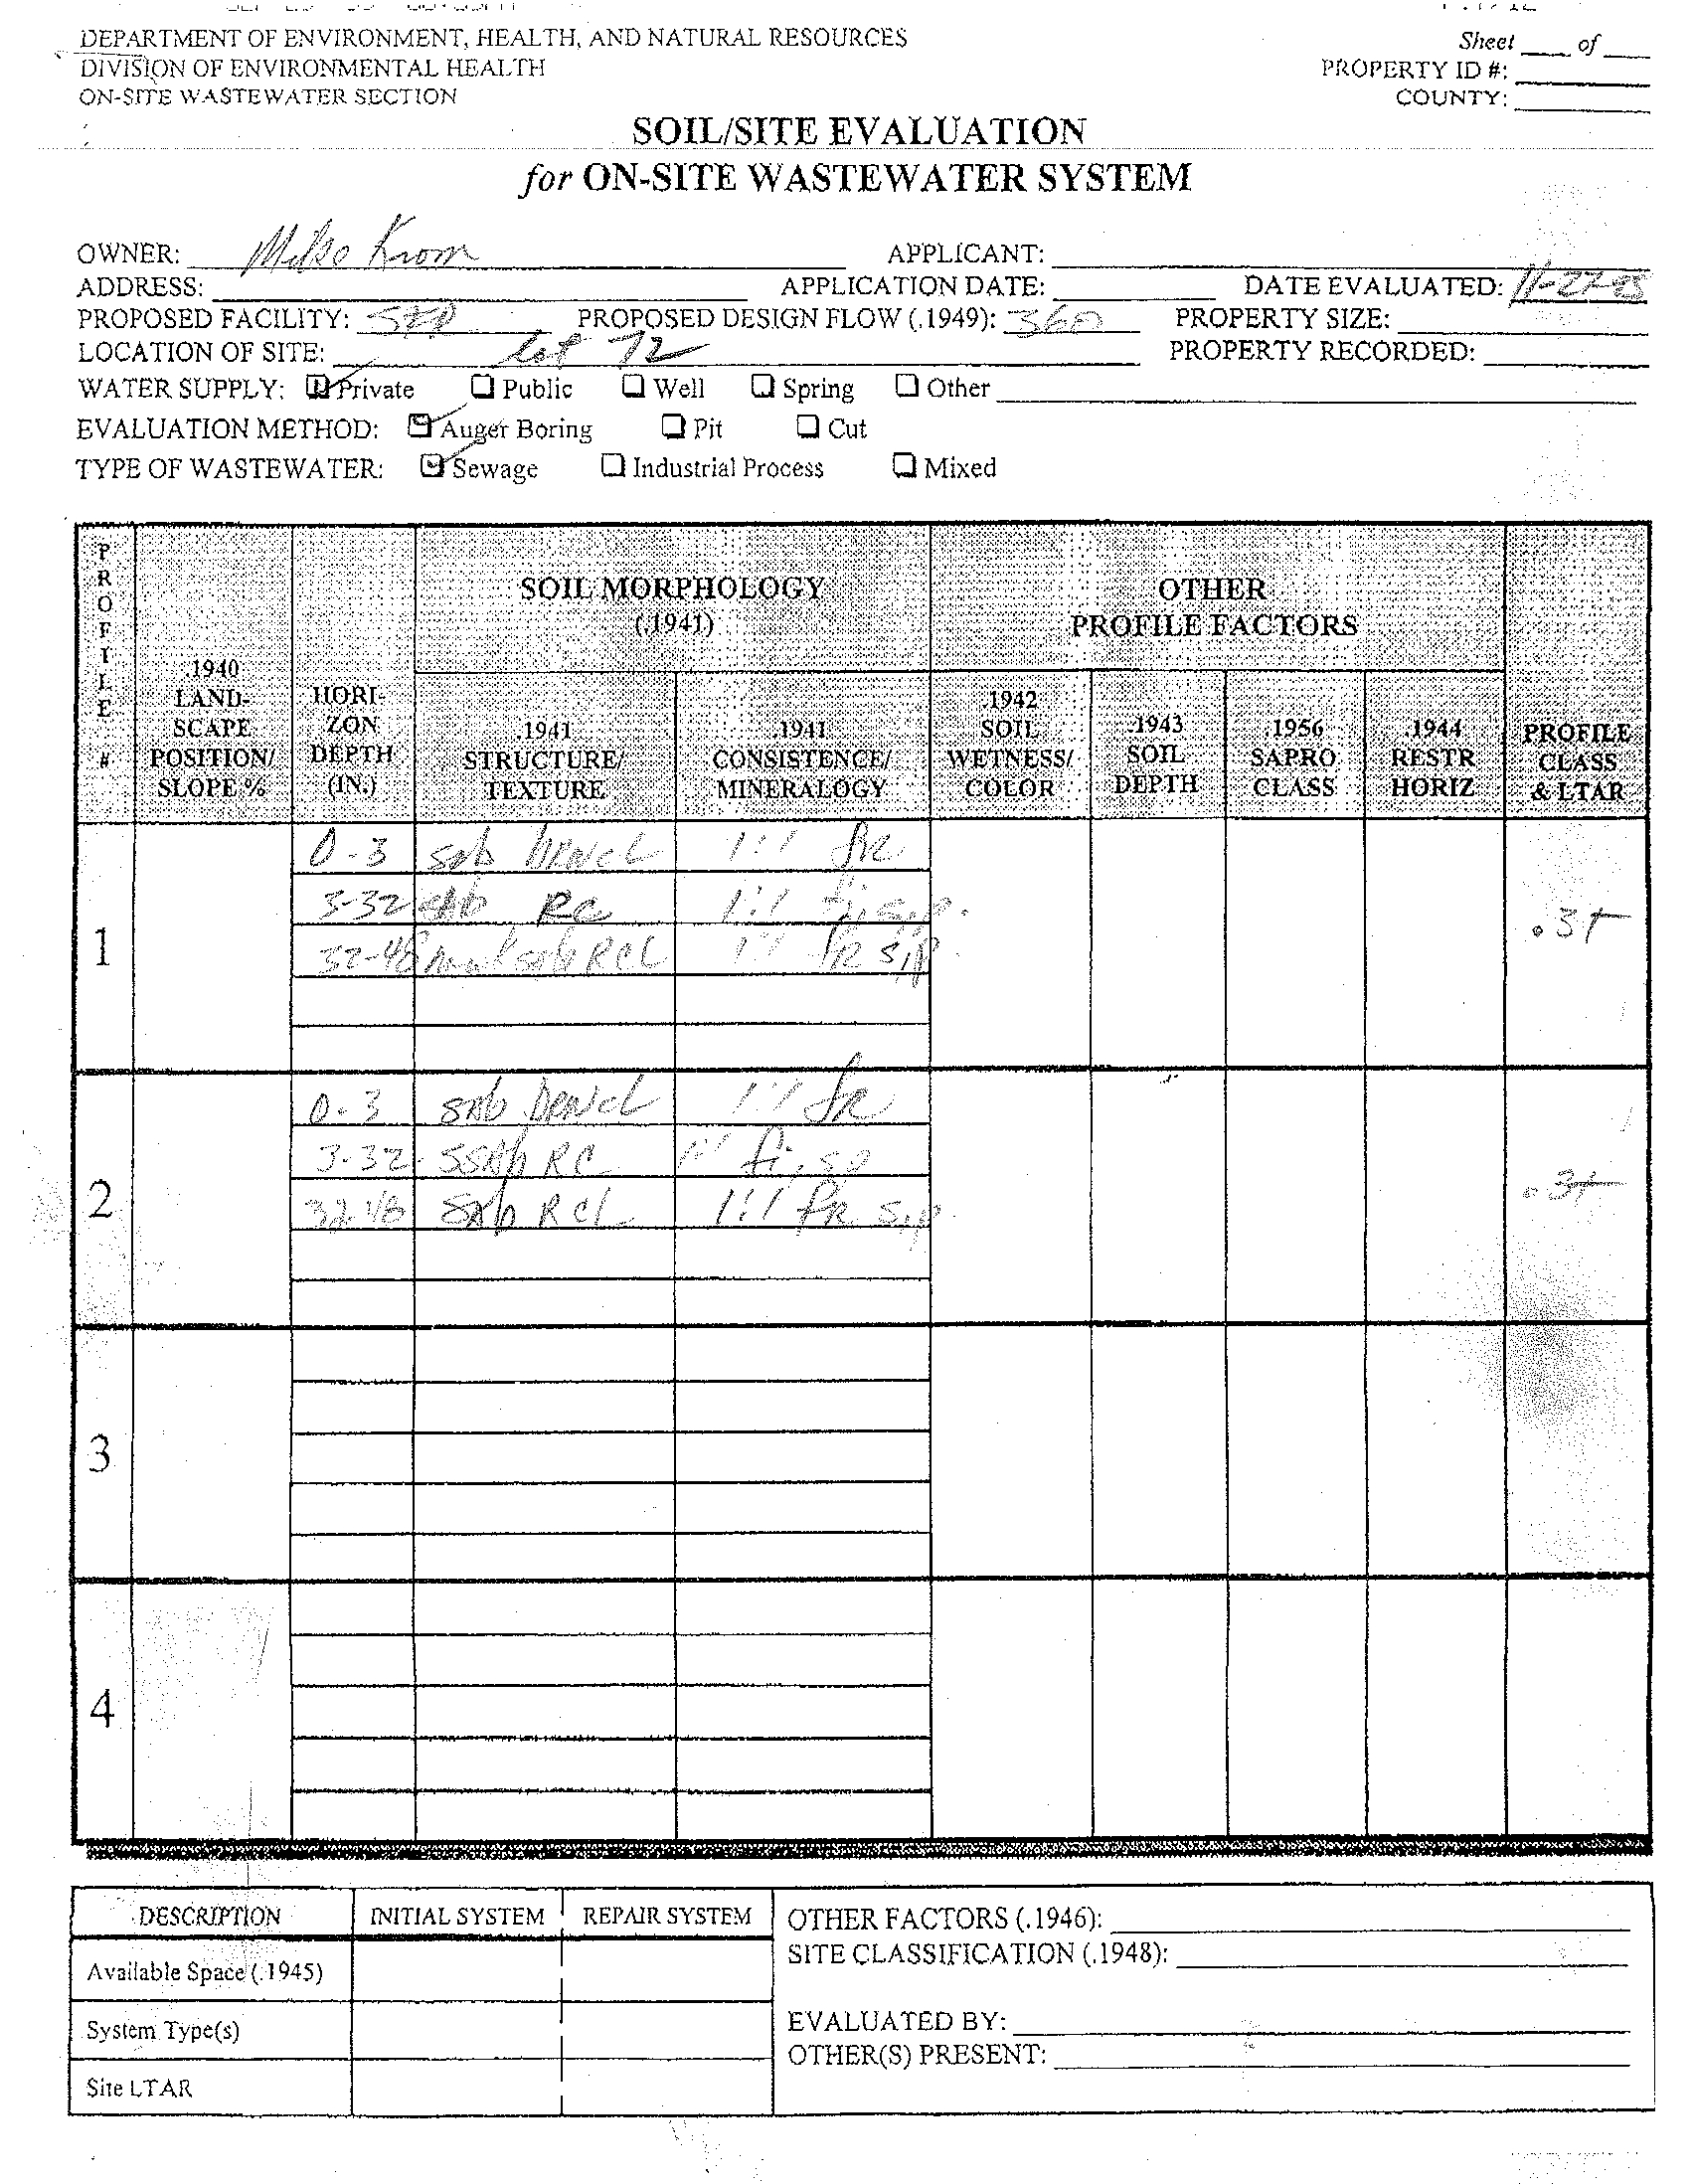 DEPARTMENT OF ENVIRONMENT, HEALTH, AND NATURAL RESOURCES
DIVISION OF ENVIRONMENTAL HEALTH
ON-SITE WASTEWATER SECTION
Sheet ____ of ____
PROPERTY ID #:
COUNTY:
SOIL/SITE EVALUATION
for ON-SITE WASTEWATER SYSTEM
OWNER: Mike Krom APPLICANT:
ADDRESS: APPLICATION DATE: DATE EVALUATED: 11-27-
PROPOSED FACILITY: PROPOSED DESIGN FLOW (.1949): 360 PROPERTY SIZE:
LOCATION OF SITE: lot 72 PROPERTY RECORDED:
WATER SUPPLY: Private Public Well Spring Other
EVALUATION METHOD: Auger Boring Pit Cut
TYPE OF WASTEWATER: Sewage Industrial Process Mixed
PROFILE #
.1940 LAND-SCAPE POSITION/ SLOPE %
HORI-ZON DEPTH (IN.)
SOIL MORPHOLOGY (.1941)
.1941 STRUCTURE/ TEXTURE
.1941 CONSISTENCE/ MINERALOGY
OTHER PROFILE FACTORS
.1942 SOIL WETNESS/ COLOR
.1943 SOIL DEPTH
.1956 SAPRO CLASS
.1944 RESTR HORIZ
PROFILE CLASS & LTAR
1
0-3 sab 1:1 fr
3-32 sab RC 1:1 fi, s,p.
32-48 sab RCL 1:1 fr s,p
.3+
2
0-3 sab 1:1 fr
3-32 RC 1:1 fi, sp
32-48 sab RCL 1:1 fr s,p.
.3+
3
4
DESCRIPTION INITIAL SYSTEM REPAIR SYSTEM
Available Space (.1945)
System Type(s)
Site LTAR
OTHER FACTORS (.1946):
SITE CLASSIFICATION (.1948):
EVALUATED BY:
OTHER(S) PRESENT: